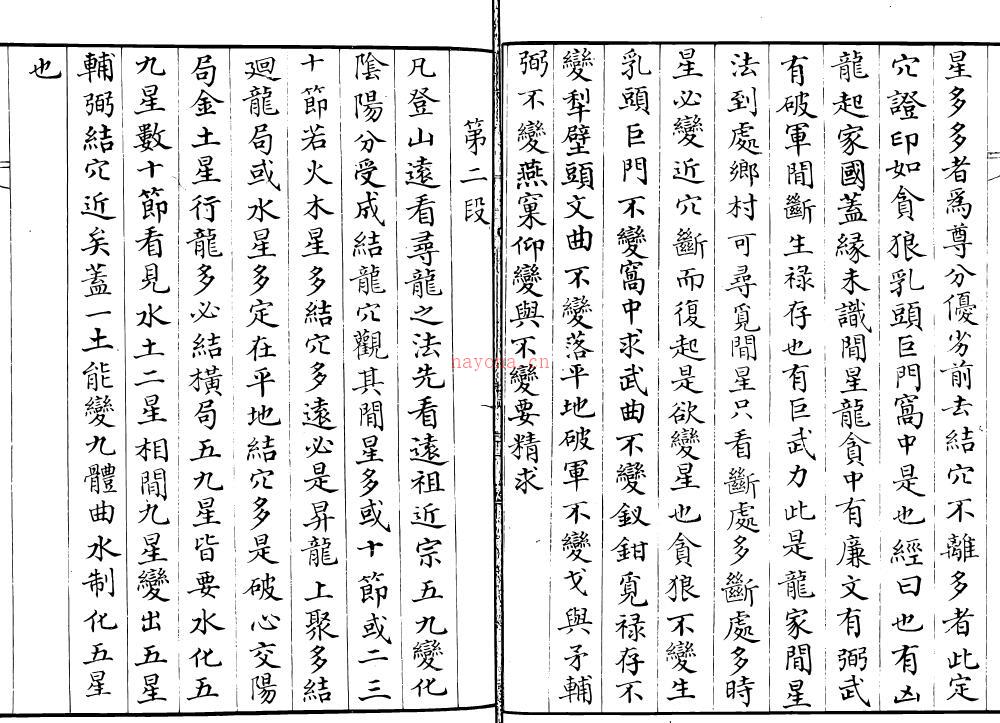 星多多者爲尊分優劣前去結穴不離多者此定
穴證印如貪狼乳頭巨門窩中是也經曰也有凶
龍起家國蓋緣未識間星龍貪中有廉文有弼武
有破軍間斷生祿存也有巨武力此是龍家間星
法到處鄉村可尋覓間星只看斷處多斷處多時
星必變近穴斷而復起是欲變星也貪狼不變生
乳頭巨門不變窩中求武曲不變釵鉗覓祿存不
變犁壁頭文曲不變落平地破軍不變戈與矛輔
弼不變燕窠仰變與不變要精求
第二段
凡登山遠看尋龍之法先看遠祖近宗五九變化
陰陽分受成結龍穴觀其間星多或十節或二三
十節若火木星多結穴多遠必是昇龍上聚多結
廻龍局或水星多定在平地結穴多是破心交陽
局金土星行龍多必結橫局五九星皆要水化五
九星數十節看見水土二星相間九星變出五星
輔弼結穴近矣蓋一土能變九體曲水制化五星
也
hayona.cn